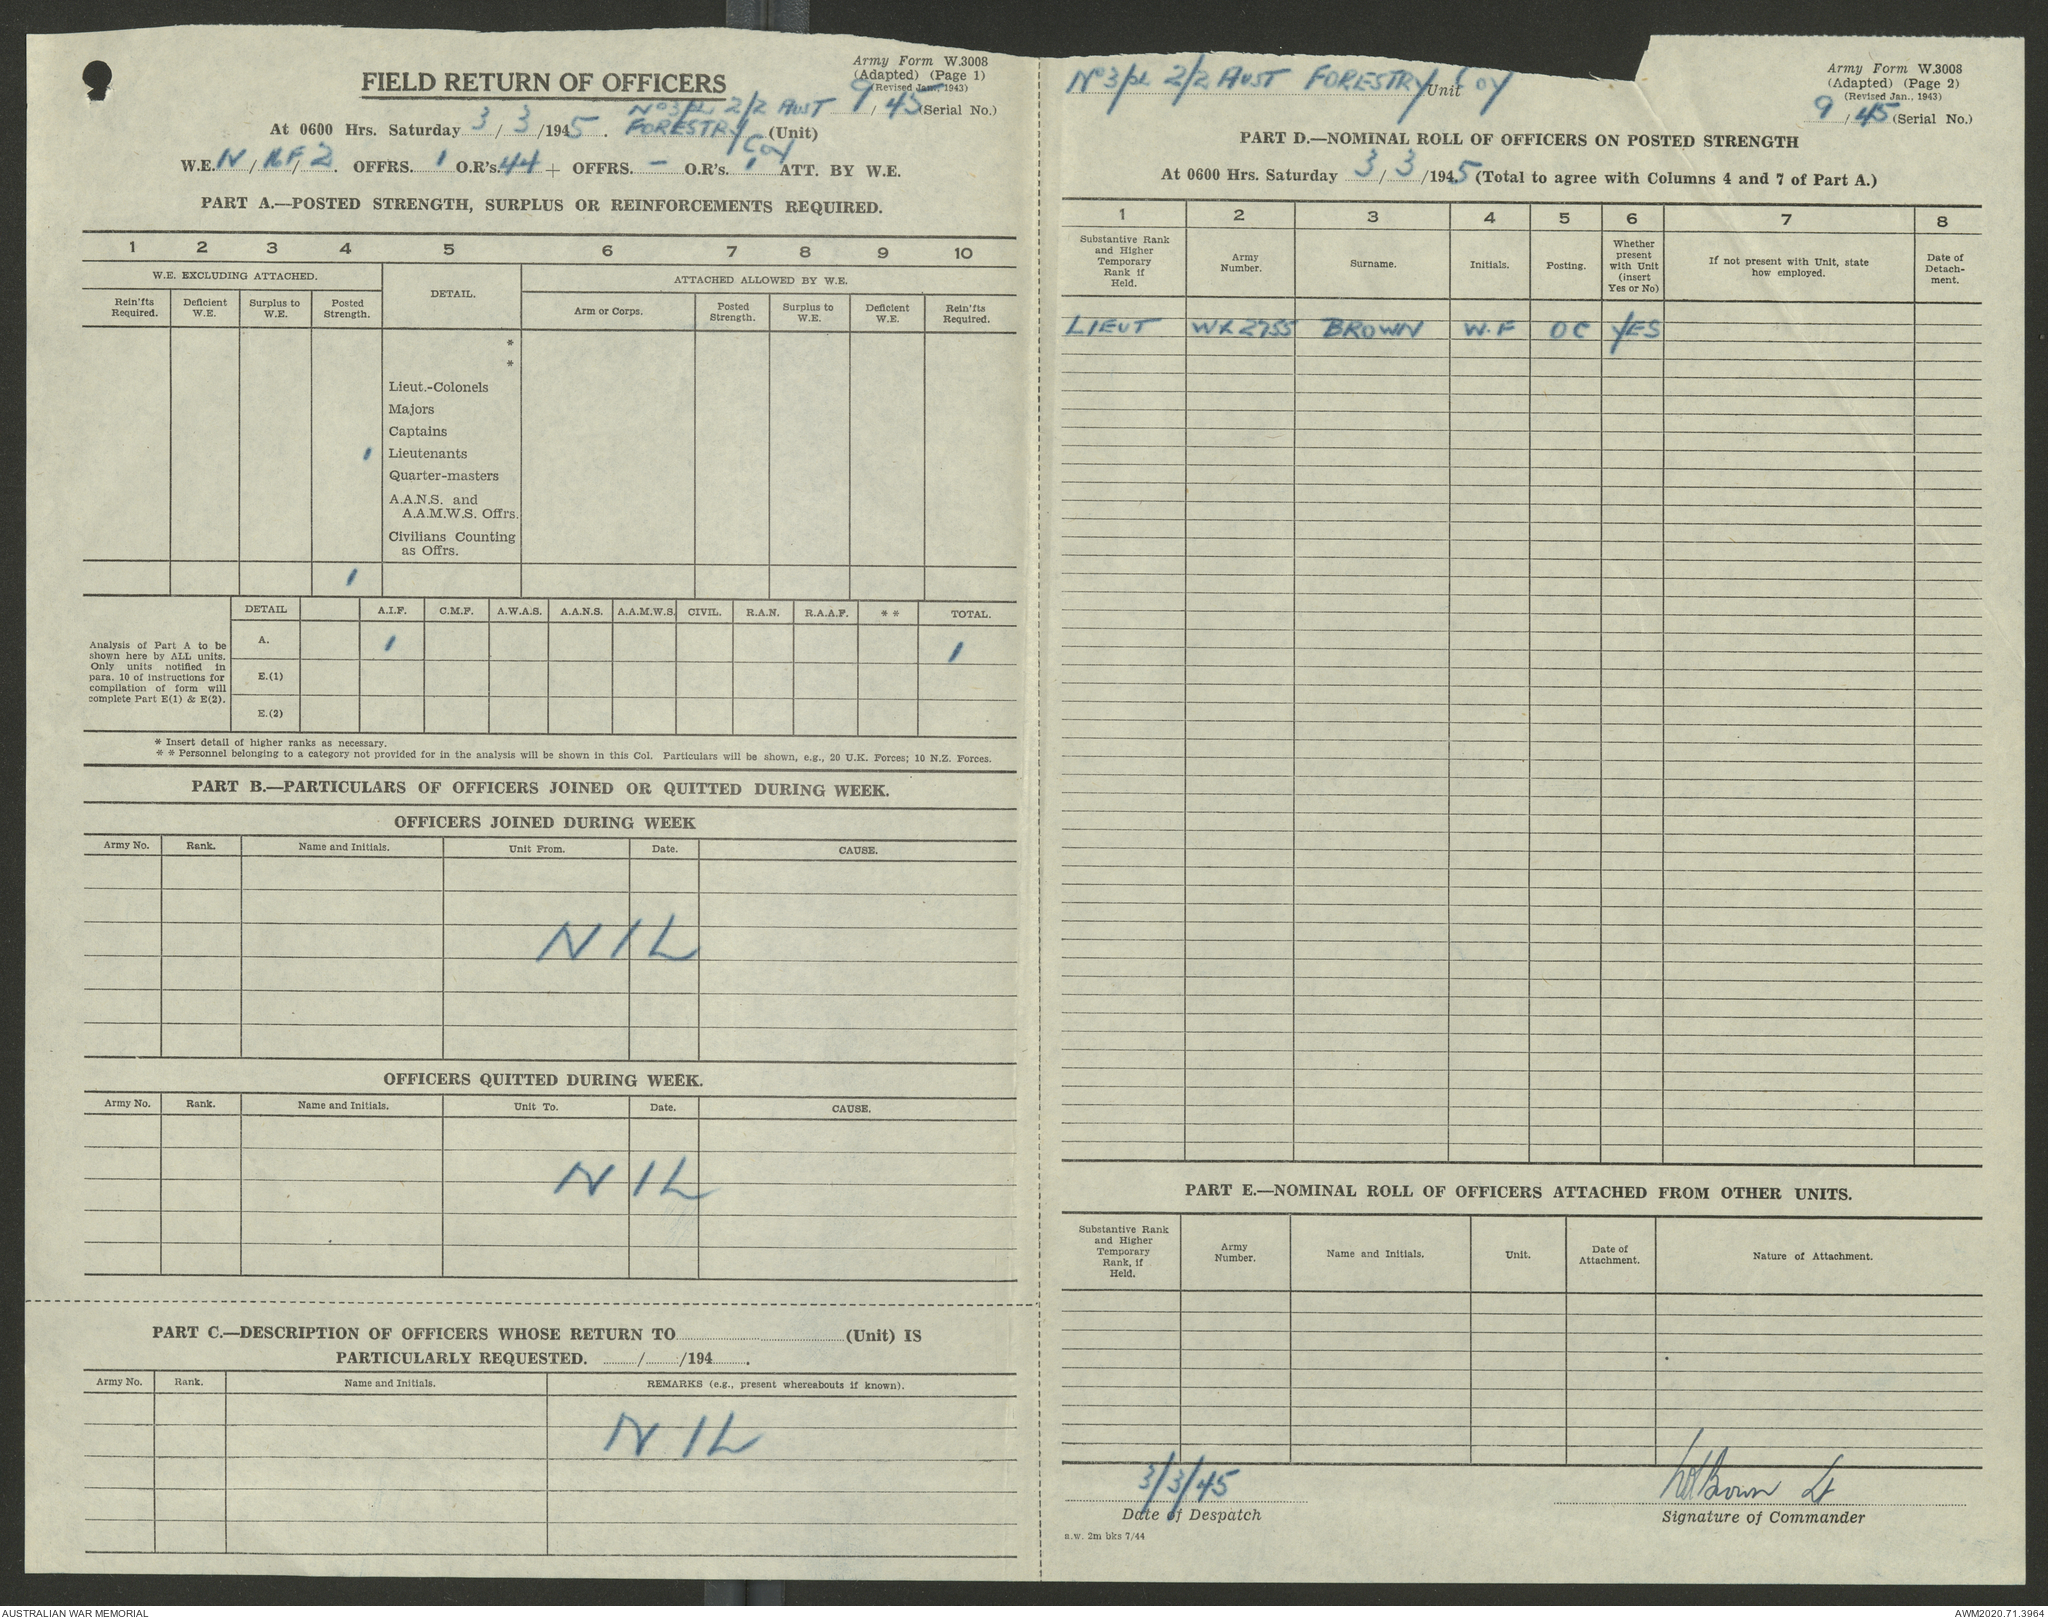 Army Form W.3008
(Adapted) (Page 1)
(Revised Jan., 1943)
FIELD RETURN OF OFFICERS
9/45 (Serial No.)
At 0600 Hrs. Saturday 3/3/1945. No 3/PL 2/2 AUST FORESTRY COY (Unit)
W.E. IV/ /2. OFFRS. 1 O.R's. 44 + OFFRS. - O.R's. 1 ATT. BY W.E.
PART A.—POSTED STRENGTH, SURPLUS OR REINFORCEMENTS REQUIRED.
1 2 3 4 5 6 7 8 9 10
W.E. EXCLUDING ATTACHED. DETAIL. ATTACHED ALLOWED BY W.E.
Rein'fts Required. Deficient W.E. Surplus to W.E. Posted Strength. Arm or Corps. Posted Strength. Surplus to W.E. Deficient W.E. Rein'fts Required.
*
*
Lieut.-Colonels
Majors
Captains
1 Lieutenants
Quarter-masters
A.A.N.S. and
A.A.M.W.S. Offrs.
Civilians Counting
as Offrs.
1
DETAIL A.I.F. C.M.F. A.W.A.S. A.A.N.S. A.A.M.W.S. CIVIL. R.A.N. R.A.A.F. * * TOTAL.
Analysis of Part A to be
shown here by ALL units.
Only units notified in
para. 10 of instructions for
compilation of form will
complete Part E(1) & E(2).
A. 1 1
E.(1)
E.(2)
* Insert detail of higher ranks as necessary.
* * Personnel belonging to a category not provided for in the analysis will be shown in this Col. Particulars will be shown, e.g., 20 U.K. Forces; 10 N.Z. Forces.
PART B.—PARTICULARS OF OFFICERS JOINED OR QUITTED DURING WEEK.
OFFICERS JOINED DURING WEEK
Army No. Rank. Name and Initials. Unit From. Date. CAUSE.
NIL
OFFICERS QUITTED DURING WEEK.
Army No. Rank. Name and Initials. Unit To. Date. CAUSE.
NIL
PART C.—DESCRIPTION OF OFFICERS WHOSE RETURN TO (Unit) IS
PARTICULARLY REQUESTED. / /194 .
Army No. Rank. Name and Initials. REMARKS (e.g., present whereabouts if known).
NIL
No 3/PL 2/2 AUST FORESTRY Unit COY
Army Form W.3008
(Adapted) (Page 2)
(Revised Jan., 1943)
9/45 (Serial No.)
PART D.—NOMINAL ROLL OF OFFICERS ON POSTED STRENGTH
At 0600 Hrs. Saturday 3/3/1945 (Total to agree with Columns 4 and 7 of Part A.)
1 2 3 4 5 6 7 8
Substantive Rank and Higher Temporary Rank if Held. Army Number. Surname. Initials. Posting. Whether present with Unit (insert Yes or No) If not present with Unit, state how employed. Date of Detach-ment.
LIEUT WX2755 BROWN W.F OC YES
PART E.—NOMINAL ROLL OF OFFICERS ATTACHED FROM OTHER UNITS.
Substantive Rank and Higher Temporary Rank, if Held. Army Number. Name and Initials. Unit. Date of Attachment. Nature of Attachment.
3/3/45 WFBrown Lt
Date of Despatch Signature of Commander
a.w. 2m bks 7/44
AUSTRALIAN WAR MEMORIAL AWM2020.71.3964